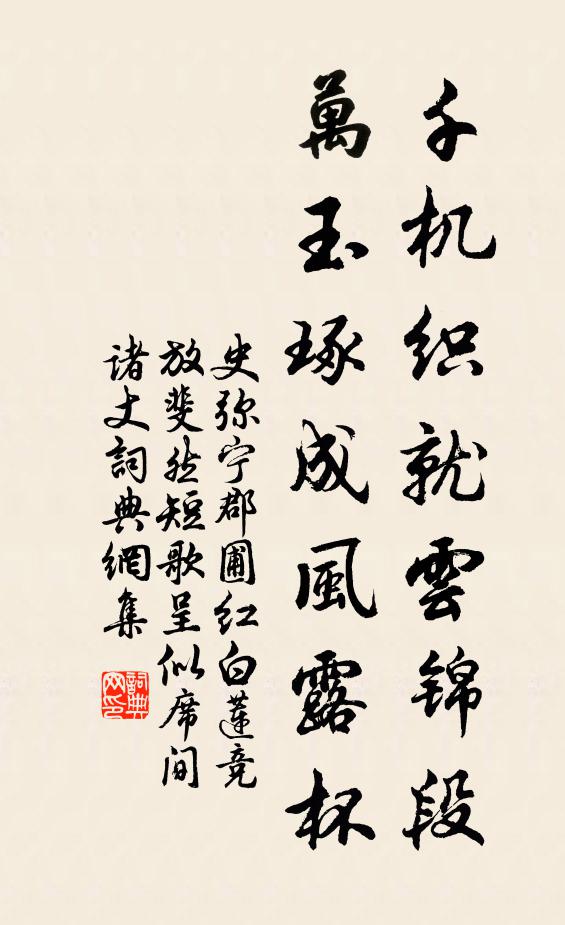 千机织就雲锦段
萬玉琢成風露杯
史弥宁郡圃红白蓮竞
放斐然短歌呈似席间
诸丈詞典網集
詞典网印